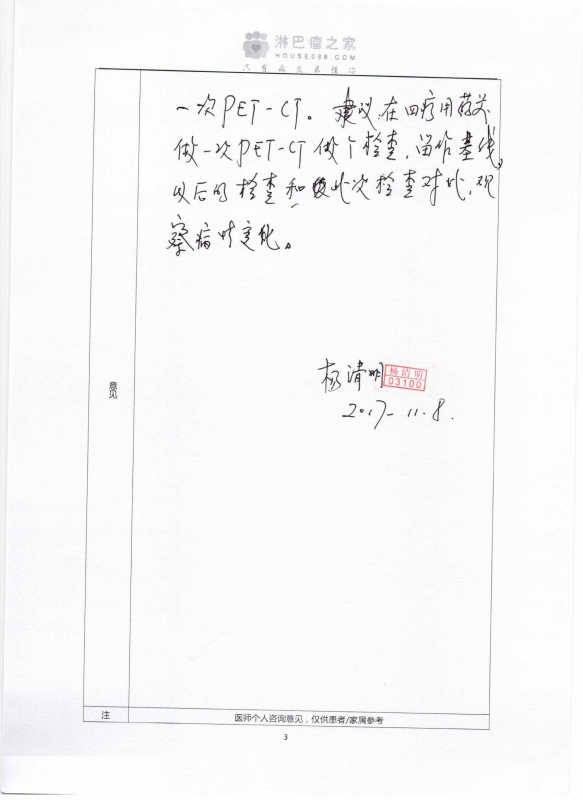 淋巴瘤之家
HOUSE086.COM
只有病友最懂你
一次PET-CT。建议在四疗用药前
做一次PET-CT做个检查,留作基线,
以后的检查和此次检查对比,观
察病情变化。
意见
杨清明
杨清明
03100
2017-11.8.
注
医师个人咨询意见，仅供患者/家属参考
3